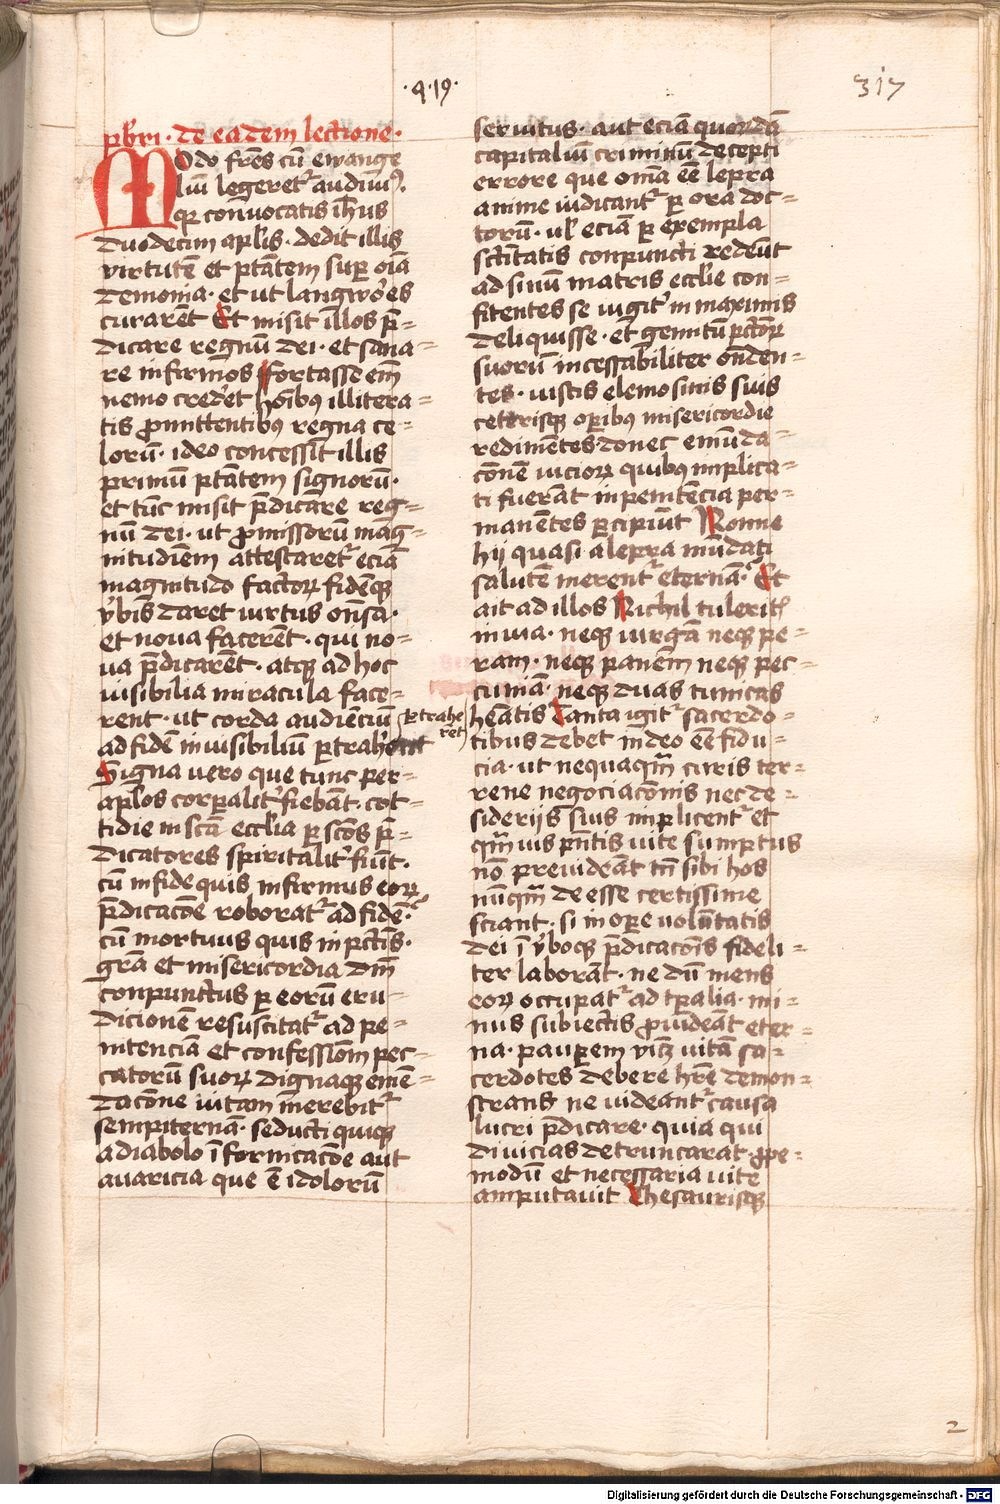 ·q·19·
317
pb̄ri · de eadem lectione ·
Modo fr̄es cū ewange
liū legeret᷑ audiuim᷒ ·
qꝫ conuocatis ih̄us
duodecim apl̄is · dedit illis
virtutē et ptātem sup̄ oīa
demonia · et ut langwor̄es
curarēt Et misit illos p̄=
dicare regnū dei · et sana=
re infirmos Fortasse em̄
nemo crederet hōibꝰ illitera=
tis ꝓmittentibꝰ regna ce=
lorū · ideo concessit illis
primū ptātem signorū ·
et tūc misit p̄dicare reg=
nū dei · ut ꝓmissorū mag=
nitudinem attestaret᷑ eciā
magnitudo factoꝝ fidēqꝫ
v̄bis daret uirtus on̄sa ·
et noua facerēt · qui no=
ua p̄dicarēt · atqꝫ ad hoc
uisibilia miracula face=
rent · ut corda audienciū
ptrahe
rēt
ad fidē inuisibiliū ptraherent
Signa uero que tunc per
apl̄os corꝑalit᷑ fiebāt · cot=
tidie in scā eccl̄ia ꝑ scōs p̄=
dicatores spiritalit᷑ fiūt ·
cū in fide quis infirmus eoꝝ
p̄dicacōe roborat᷑ ad fidē ·
cū mortuus quis in pctīs ·
gr̄a et misericordia dn̄i
conpunctus ꝑ eorū eru=
dicionē resuscitat᷑ ad pe=
nitenciā et confessiōm pec=
catorū suoꝝ dignaqꝫ emē=
dacōne uitam merebit᷑
sempiternā · seducti quiqꝫ
a diabolo ī fornicacōe aut
auaricia que ē idolorū
seruitus · aut eciā quordā
capitaliū criminū decepti
errore que om̄a eē lepra
anime iudicant᷑ ꝑ ora doc=
torū · ul̄ eciā ꝑ exempla
sctītatis conpuncti redeūt
ad sinū matris eccl̄ie con=
fitentes se iugit᷑ in maximis
deliquisse · et gemitū pctōꝝ
suorū incessabiliter on̄den=
tes · iustis elemosinis suis
ceterisqꝫ oꝑibus misericordie
redimētes donec emūda=
cōnē uicioꝝ quibꝰ implica=
ti fuerāt in penitēcia per=
manētes ꝑcipiūt Nonne
hij quasi a lepra mūdati
salutē merent᷑ eternā · Et
ait ad illos Nichil tulerit̄
in uia · neqꝫ uirgā neqꝫ pe=
ram · neqꝫ panem neqꝫ pec=
cuniā · neqꝫ duas tunicas
heātis Tanta igit᷑ sacerdo=
tibus debet in deo eē fidu=
cia · ut nequaqm̄ curis ter=
rene negociacōnis nec de=
siderijs suis implicent᷑ et
qm̄uis pn̄tis uite sumptus
nō preuideāt tn̄ sibi hos
nūqm̄ deesse certissime
sciant · si in oꝑe uolūtatis
dei ī v̄boqꝫ p̄dicacōis fideli=
ter laborāt · ne dū mens
eoꝝ occupat᷑ ad tꝑalia · mi=
nus subiectis ꝓuideāt eter=
na · pauꝑem v̄iꝫ uitā sa=
cerdotes debere hr̄e demon=
strans ne uideant᷑ causa
lucri p̄dicare · quia qui
diuicias detruncarat ꝓpe=
modū et necessaria uite
amputauit Thesaurisqꝫ
2
Digitalisierung gefördert durch die Deutsche Forschungsgemeinschaft - DFG